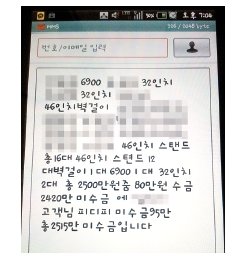 MMS
오후 7:04
번호/이메일 입력
6900 32인치
32인치
46인치벽걸이
46인치 스탠드
총16대 46인치 스텐드 12
대벽걸이 1대 6900 1대 32인치
2대 총 2500만원중 80만원 수금
2420만 미수금 에
고객님 피디피 미수금95만
총2515만 미수금입니다